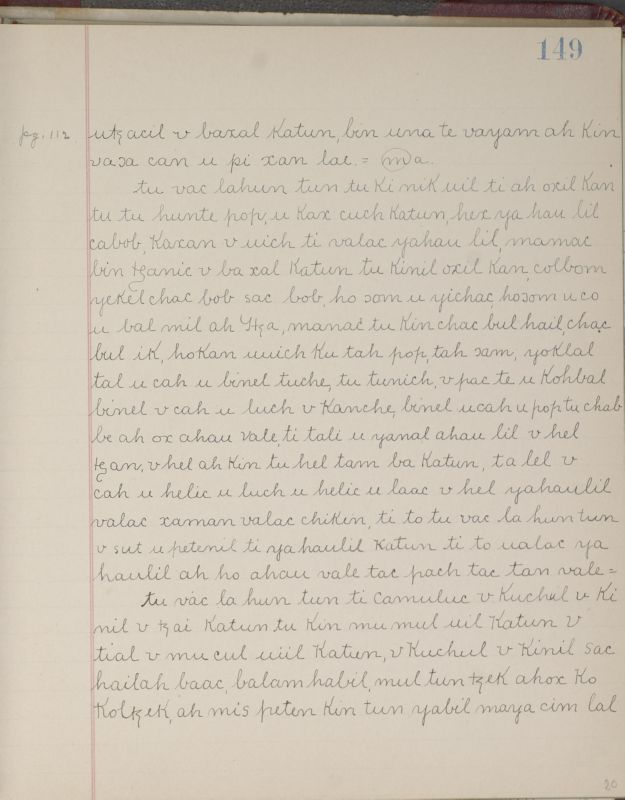 149
pg. 112
utꜩacil v baxal Katun, bin una te vayam ah Kin
vaɔa can u pi xan lae. = ma.
tu vac lahun tun tu Ki nik uil ti ah oxil Kan
tu tu hunte pop, u Kax cuch Katun, hex ya hau lil
cabob, Kaxan v uich ti valac yahau lil, mamac
bin ꜩanic v ba xal Katun tu Kinil oxil Kan, colbom
yekelchac bob sac bob, ho ɔom u yichac, hoɔom u co
u bal mil ah Ytꜩa, manac tu Kin chac bul hail, chac
bul ik, hokan uuich Ku tah pop, tah ɔam, yoklal
tal u cah u binel tuche, tu tunich, v pac te u Kohbal
binel v cah u luch v Kanche, binel ucah u pop tu chab
be ah ox ahau vale, ti tali u yanal ahau lil v hel
ꜩan, v hel ah Kin tu hel tam ba Katun, ta lel v
cah u helic u luch u helic u laac v hel yahaulil
valac xaman valac chikin, ti to tu vac la hun tun
v sut u petenil ti ya haulil Katun ti to ualac ya
haulil ah ho ahau vale tac pach tac tan vale =
tu vac la hun tun ti Camuluc v Kuchul v Ki
nil v ꜩai Katun tu Kin mu mul uil Katun v
tial v mu cul uiil Katun, v Kuchul v Kinil sac
hailah baac, balam habil, mul tun tꜩek ahox Ko
Koltꜩek, ah mis peten Kin tun yabil maya cim lal
20